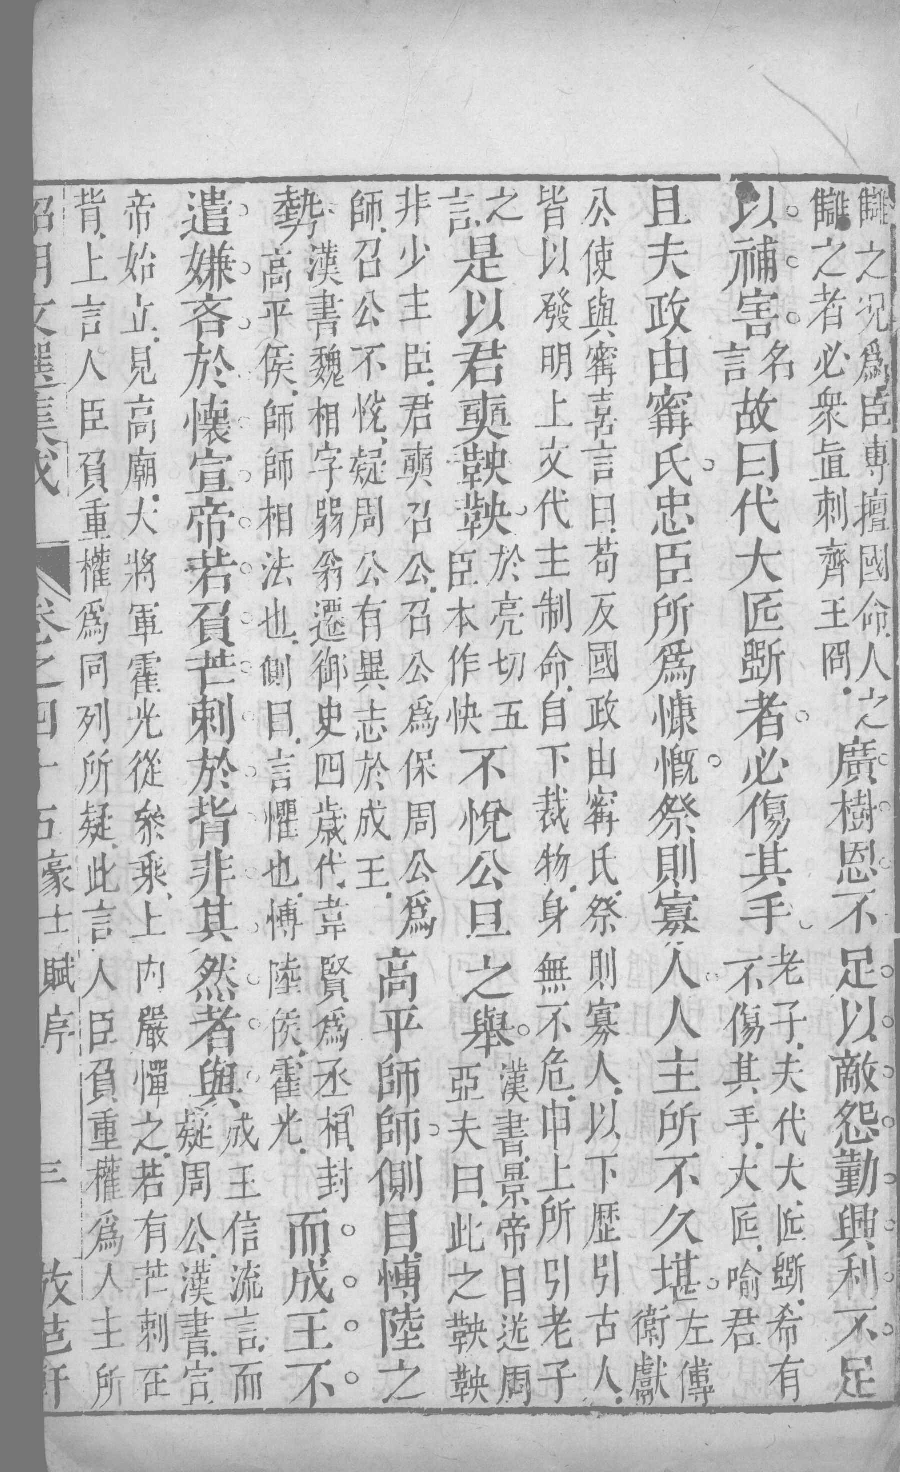 讎之況爲臣專擅國命人之
讎之者必衆直刺齊王冏
廣樹恩不足以敵怨勤興利不足
以補害
名
言
故曰代大匠斲者必傷其手
老子夫代大匠斲希有
不傷其手大匠喻君
且夫政由甯氏忠臣所爲慷慨祭則寡人人主所不久堪
左傳
衛獻
公使與甯喜言曰苟反國政由甯氏祭則寡人以下歷引古人
皆以發明上文代主制命自下裁物身無不危申上所引老子
之
言
是以君奭鞅鞅
於亮切五
臣本作怏
不悅公旦之舉
漢書景帝目送周
亞夫曰此之鞅鞅
非少主臣君奭召公召公爲保周公爲
師召公不悅疑周公有異志於成王
高平師師側目博陸之
勢
漢書魏相字弱翁遷御史四歲代韋賢爲丞相封
高平侯師師相法也側目言懼也博陸侯霍光
而成王不
遣嫌吝於懷宣帝若負芒刺於背非其然者與
成王信流言而
疑周公漢書宣
帝始立見高廟大將軍霍光從參乘上內嚴憚之若有芒刺在
背上言人臣負重權爲同列所疑此言人臣負重權爲人主所
昭明文選集成 卷之四十五豪士賦序 三 倣范軒